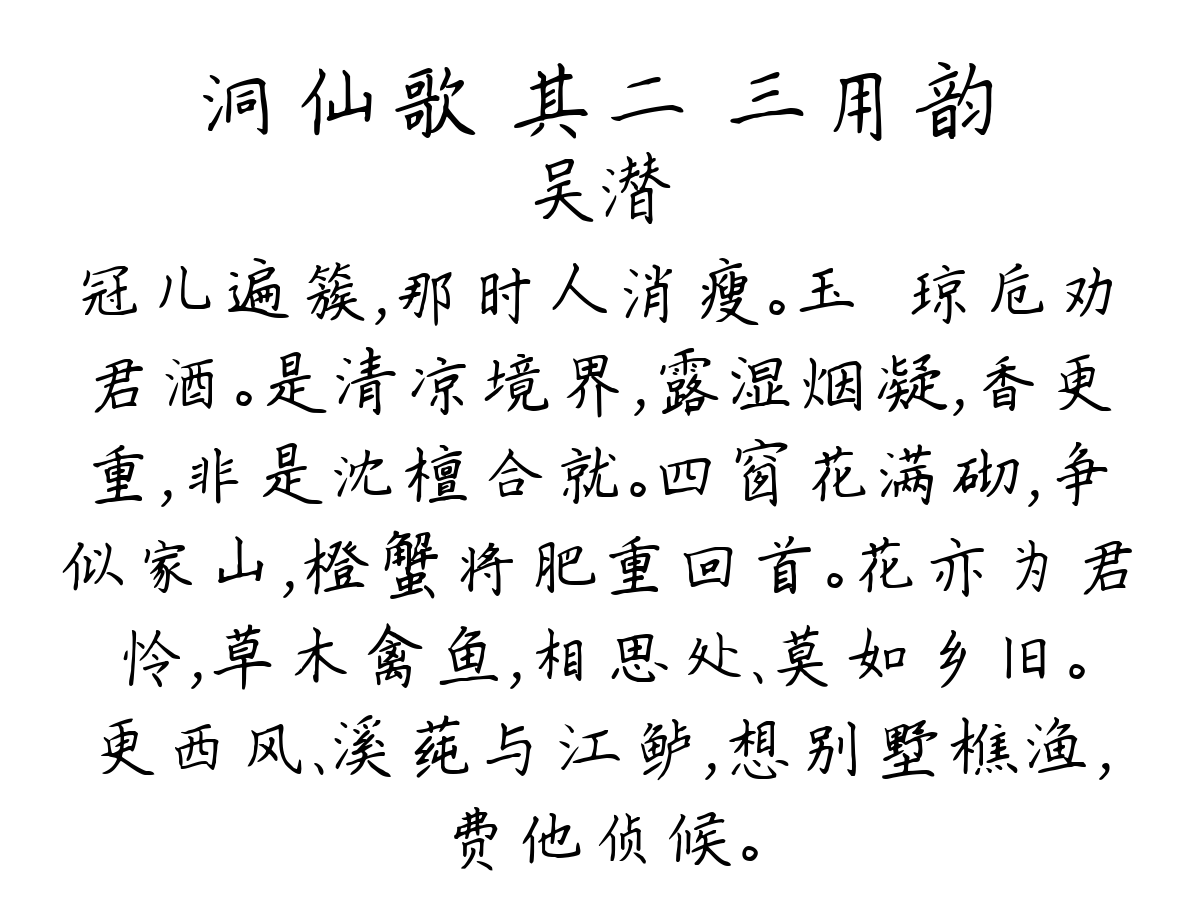 洞仙歌 其二 三用韵
吴潜
冠儿遍簇,那时人消瘦。玉 琼卮劝
君酒。是清凉境界,露湿烟凝,香更
重,非是沈檀合就。四窗花满砌,争
似家山,橙蟹将肥重回首。花亦为君
怜,草木禽鱼,相思处、莫如乡旧。
更西风、溪莼与江鲈,想别墅樵渔,
费他侦候。